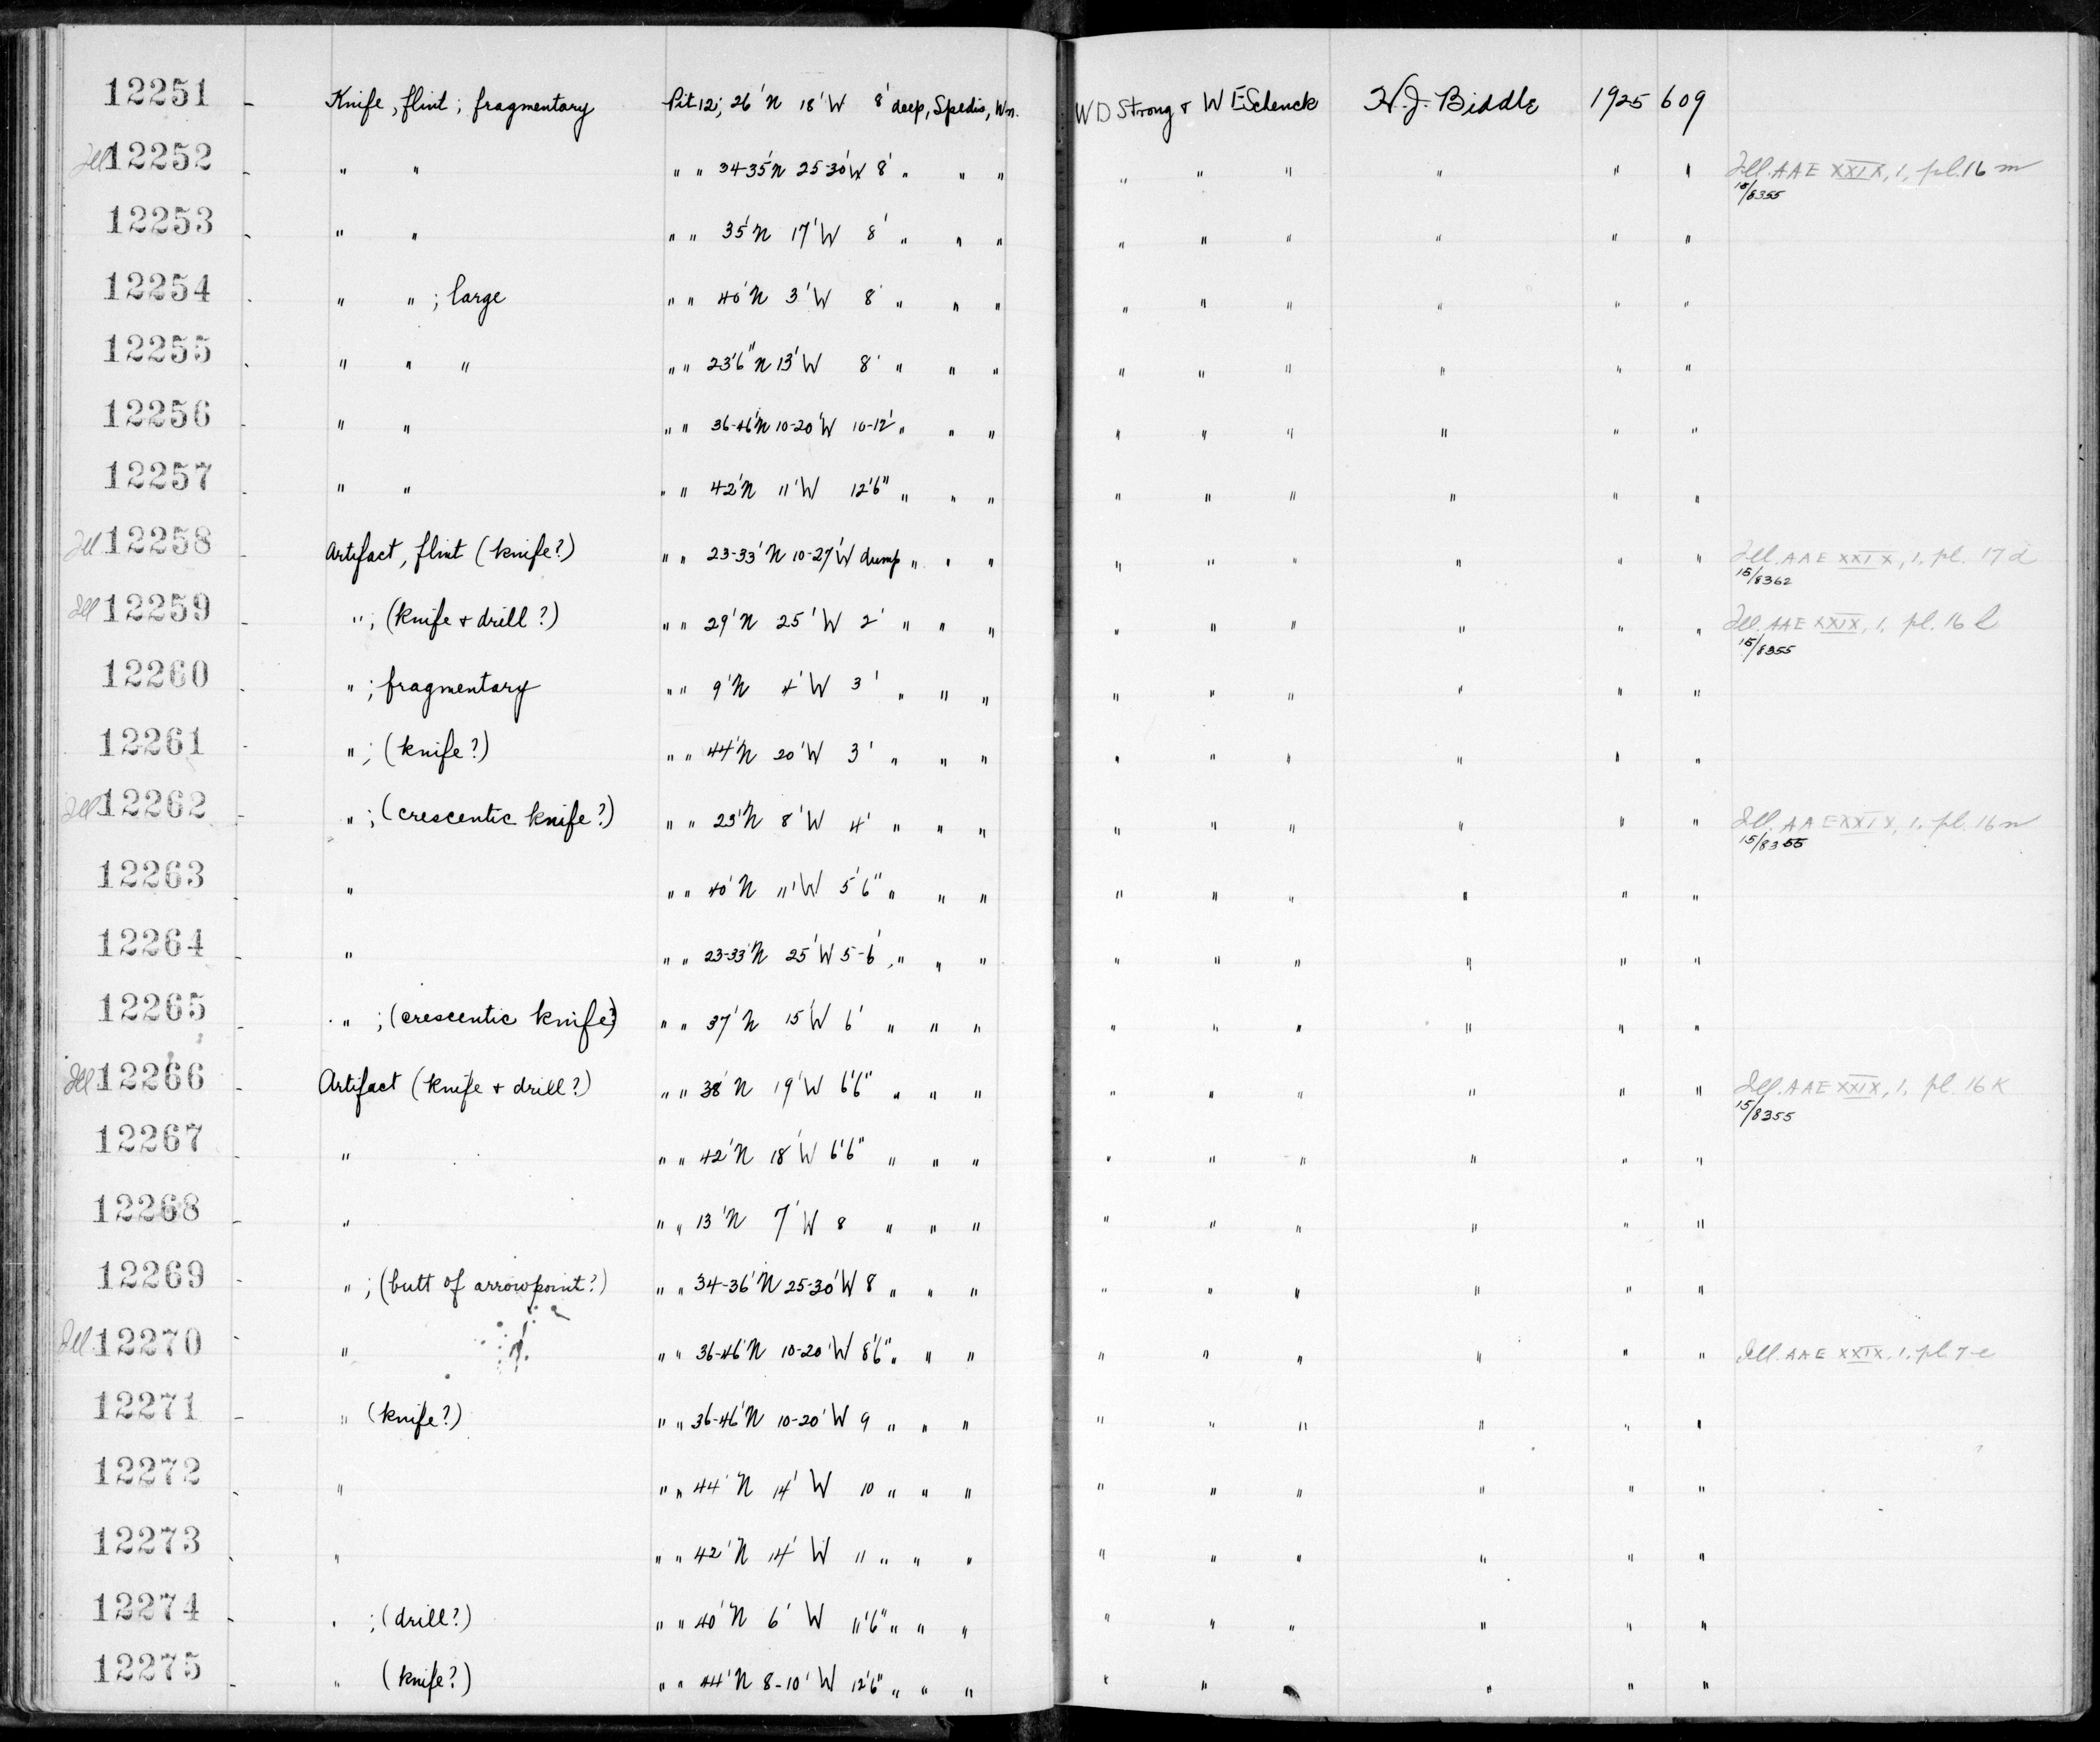 12251 - Knife, flint; fragmentary Pit 12; 26' N 18' W 8' deep, Spedis, Wn. W D Strong & W E Schenck H. J. Biddle 1925 609
Ill 12252 - " " " " 34-35' N 25-30' W 8' " " " " " " " " " Ill. AAE XXIX, 1, pl. 16 m
15/8355
12253 - " " " " 35' N 17' W 8' " " " " " " " " "
12254 - " " ; large " " 40' N 3' W 8' " " " " " " " " "
12255 - " " " " " 23'6" N 13' W 8' " " " " " " " " "
12256 - " " " " 36-46' N 10-20' W 10-12' " " " " " " " " "
12257 - " " " " 42' N 11' W 12'6" " " " " " " " " "
Ill 12258 - Artifact, flint (knife?) " " 23-33' N 10-27' W dump " " " " " " " " " Ill. AAE XXIX, 1, pl. 17 d
15/8362
Ill 12259 - " ; (knife & drill?) " " 29' N 25' W 2' " " " " " " " " " Ill. AAE XXIX, 1, pl. 16 l
15/8355
12260 - " ; fragmentary " " 9' N 4' W 3' " " " " " " " " "
12261 - " ; (knife?) " " 44' N 20' W 3' " " " " " " " " "
Ill 12262 - " ; (crescentic knife?) " " 23' N 8' W 4' " " " " " " " " " Ill. AAE XXIX, 1, pl. 16 n
15/8355
12263 - " " " 40' N 11' W 5'6" " " " " " " " " "
12264 - " " " 23-33' N 25' W 5-6' " " " " " " " " "
12265 - " ; (crescentic knife?) " " 37' N 15' W 6' " " " " " " " " "
Ill 12266 - Artifact (knife & drill?) " " 38' N 19' W 6'6" " " " " " " " " " Ill. AAE XXIX, 1, pl. 16 k
15/8355
12267 - " " " 42' N 18' W 6'6" " " " " " " " " "
12268 - " " " 13' N 7' W 8 " " " " " " " " "
12269 - " ; (butt of arrowpoint?) " " 34-36' N 25-30' W 8 " " " " " " " " "
Ill. 12270 - " " " 36-46' N 10-20' W 8'6" " " " " " " " " " Ill. AAE XXIX, 1, pl. 7-e
12271 - " (knife?) " " 36-46' N 10-20' W 9 " " " " " " " " "
12272 - " " " 44' N 14' W 10 " " " " " " " " "
12273 - " " " 42' N 14' W 11 " " " " " " " " "
12274 - " ; (drill?) " " 40' N 6' W 11'6" " " " " " " " " "
12275 - " (knife?) " " 44' N 8-10' W 12'6" " " " " " " " " "